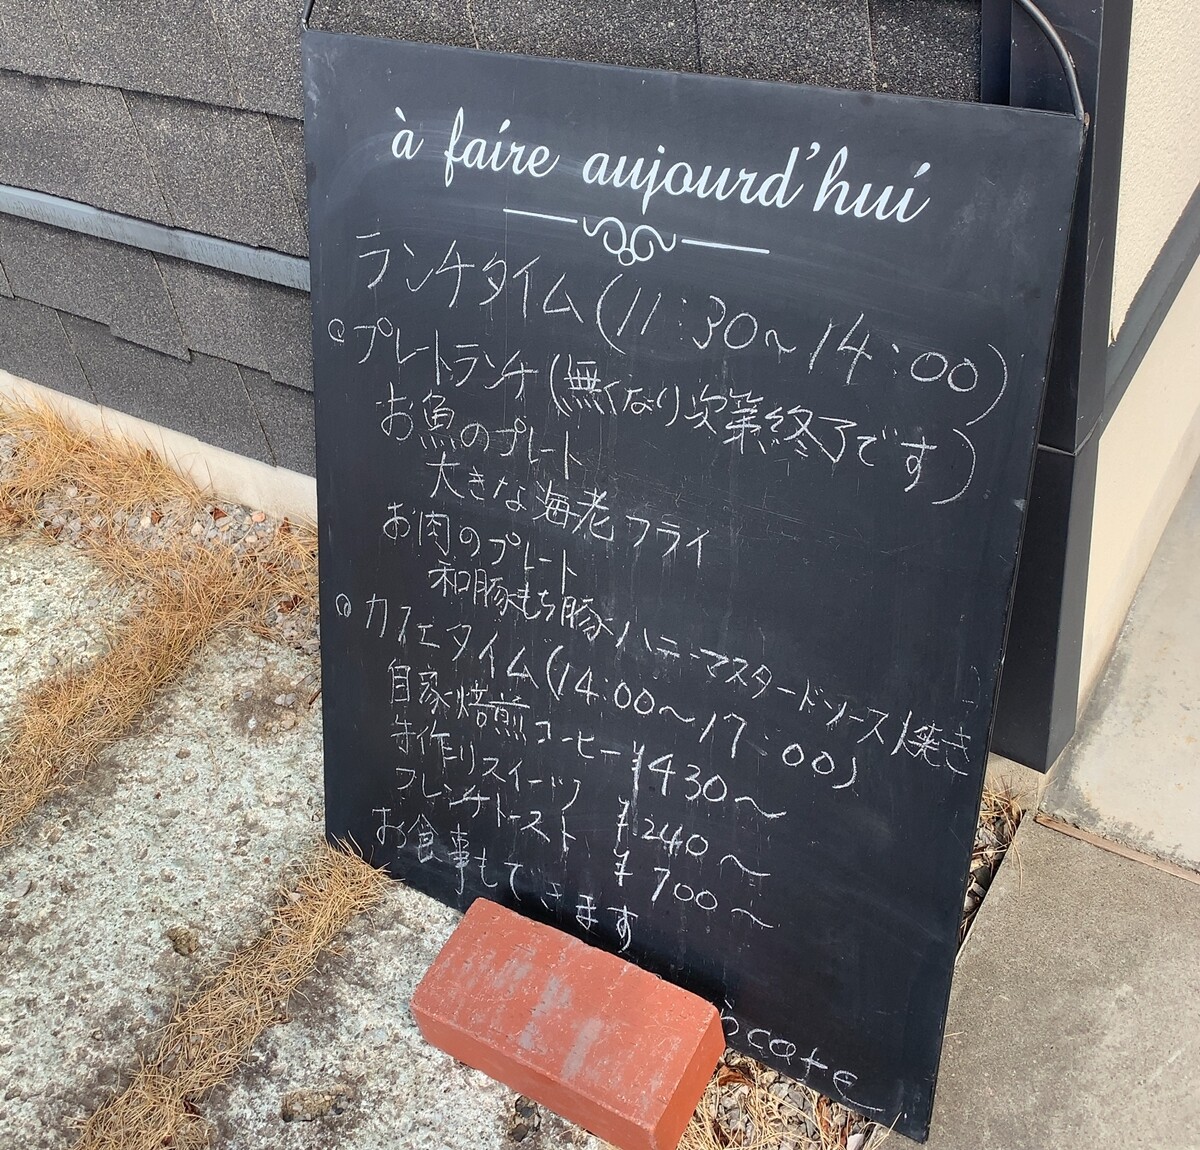 à faire aujourd'hui
ランチタイム(11:30~14:00)
◎プレートランチ(無くなり次第終了です)
お魚のプレート
大きな海老フライ
お肉のプレート
和豚もち豚ハニーマスタードソース焼き
◎カフェタイム(14:00~17:00)
自家焙煎コーヒー ¥430~
手作りスイーツ ¥240~
フレンチトースト ¥700~
お食事もできます